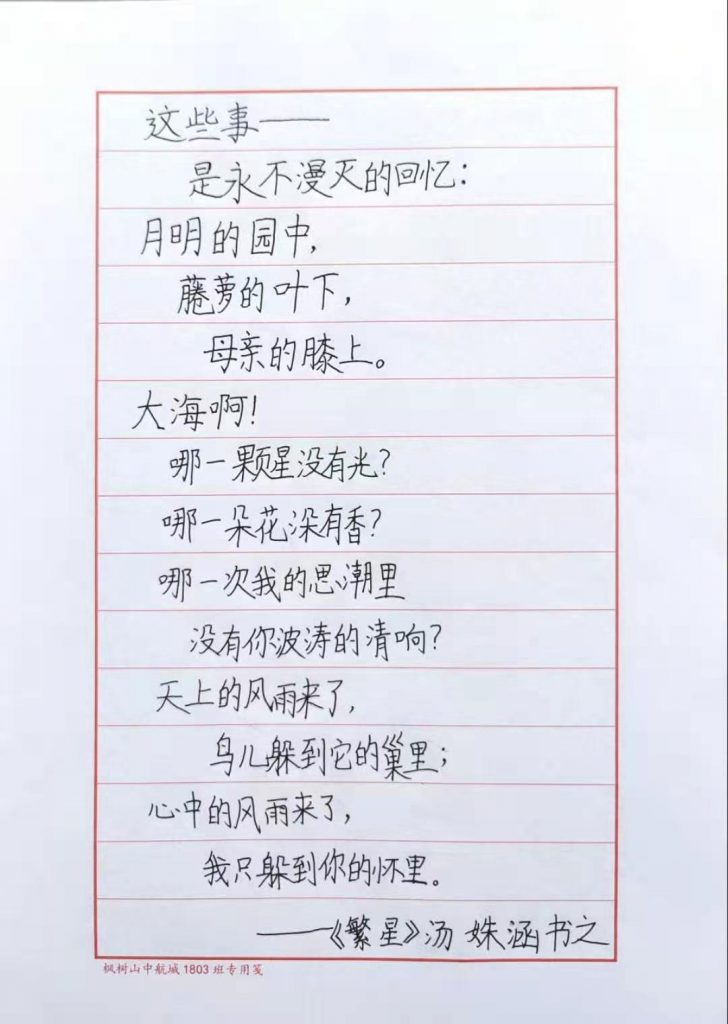 这些事——
是永不漫灭的回忆：
月明的园中，
藤萝的叶下，
母亲的膝上。
大海啊！
哪一颗星没有光？
哪一朵花没有香？
哪一次我的思潮里
没有你波涛的清响？
天上的风雨来了，
鸟儿躲到它的巢里；
心中的风雨来了，
我只躲到你的怀里。
——《繁星》汤姝涵书之
枫树山中航城1803班专用笺